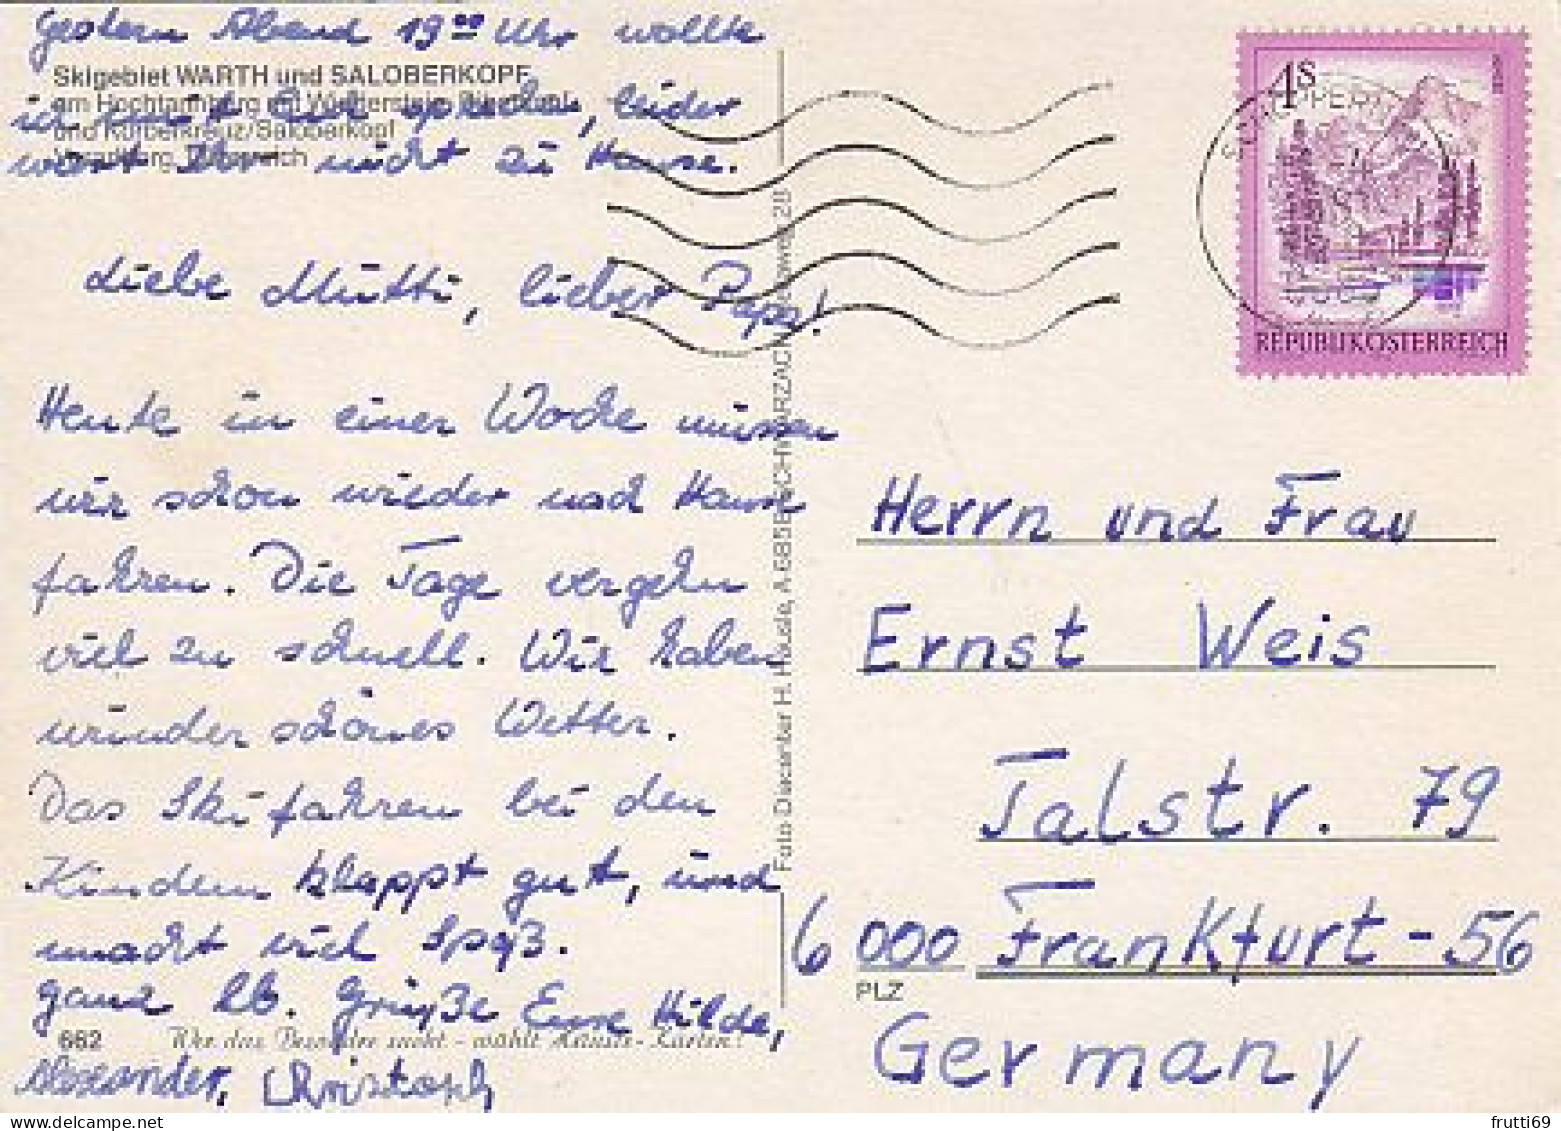 Gestern Abend 19⁰⁰ Uhr wollte
Skigebiet WARTH und SALOBERKOPF
am Hochtannberg mit Widderstein,
ich mit Euch sprechen, leider
und Körberkreuz/Saloberkopf
Vorarlberg, Österreich
wart Ihr nicht zu Hause.
Liebe Mutti, lieber Papa!
Heute in einer Woche müssen
wir schon wieder nach Hause
fahren. Die Tage vergehn
viel zu schnell. Wir haben
wunderschönes Wetter.
Das Skifahren bei den
Kindern klappt gut, und
macht viel Spaß.
ganz lb. Grüße Eure Hilde,
662 Wer das Besondere sucht - wählt Häusle-Karten!
Alexander, Christoph
Foto Diecanber H. Häusle, A 6858 SCHWARZACH, 28
4 S
REPUBLIK ÖSTERREICH
Herrn und Frau
Ernst Weis
Talstr. 79
6000 Frankfurt - 56
PLZ
Germany
frutti69